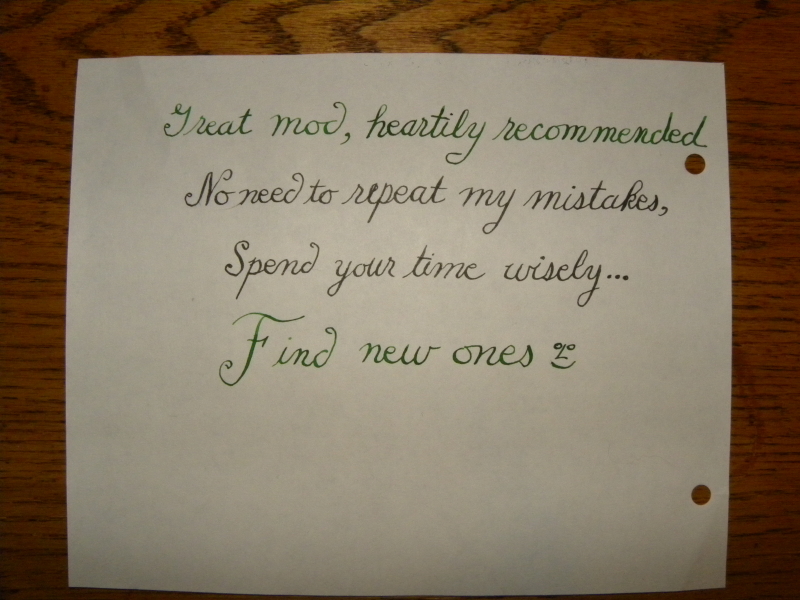 Great mod, heartily recommended
No need to repeat my mistakes,
Spend your time wisely...
Find new ones